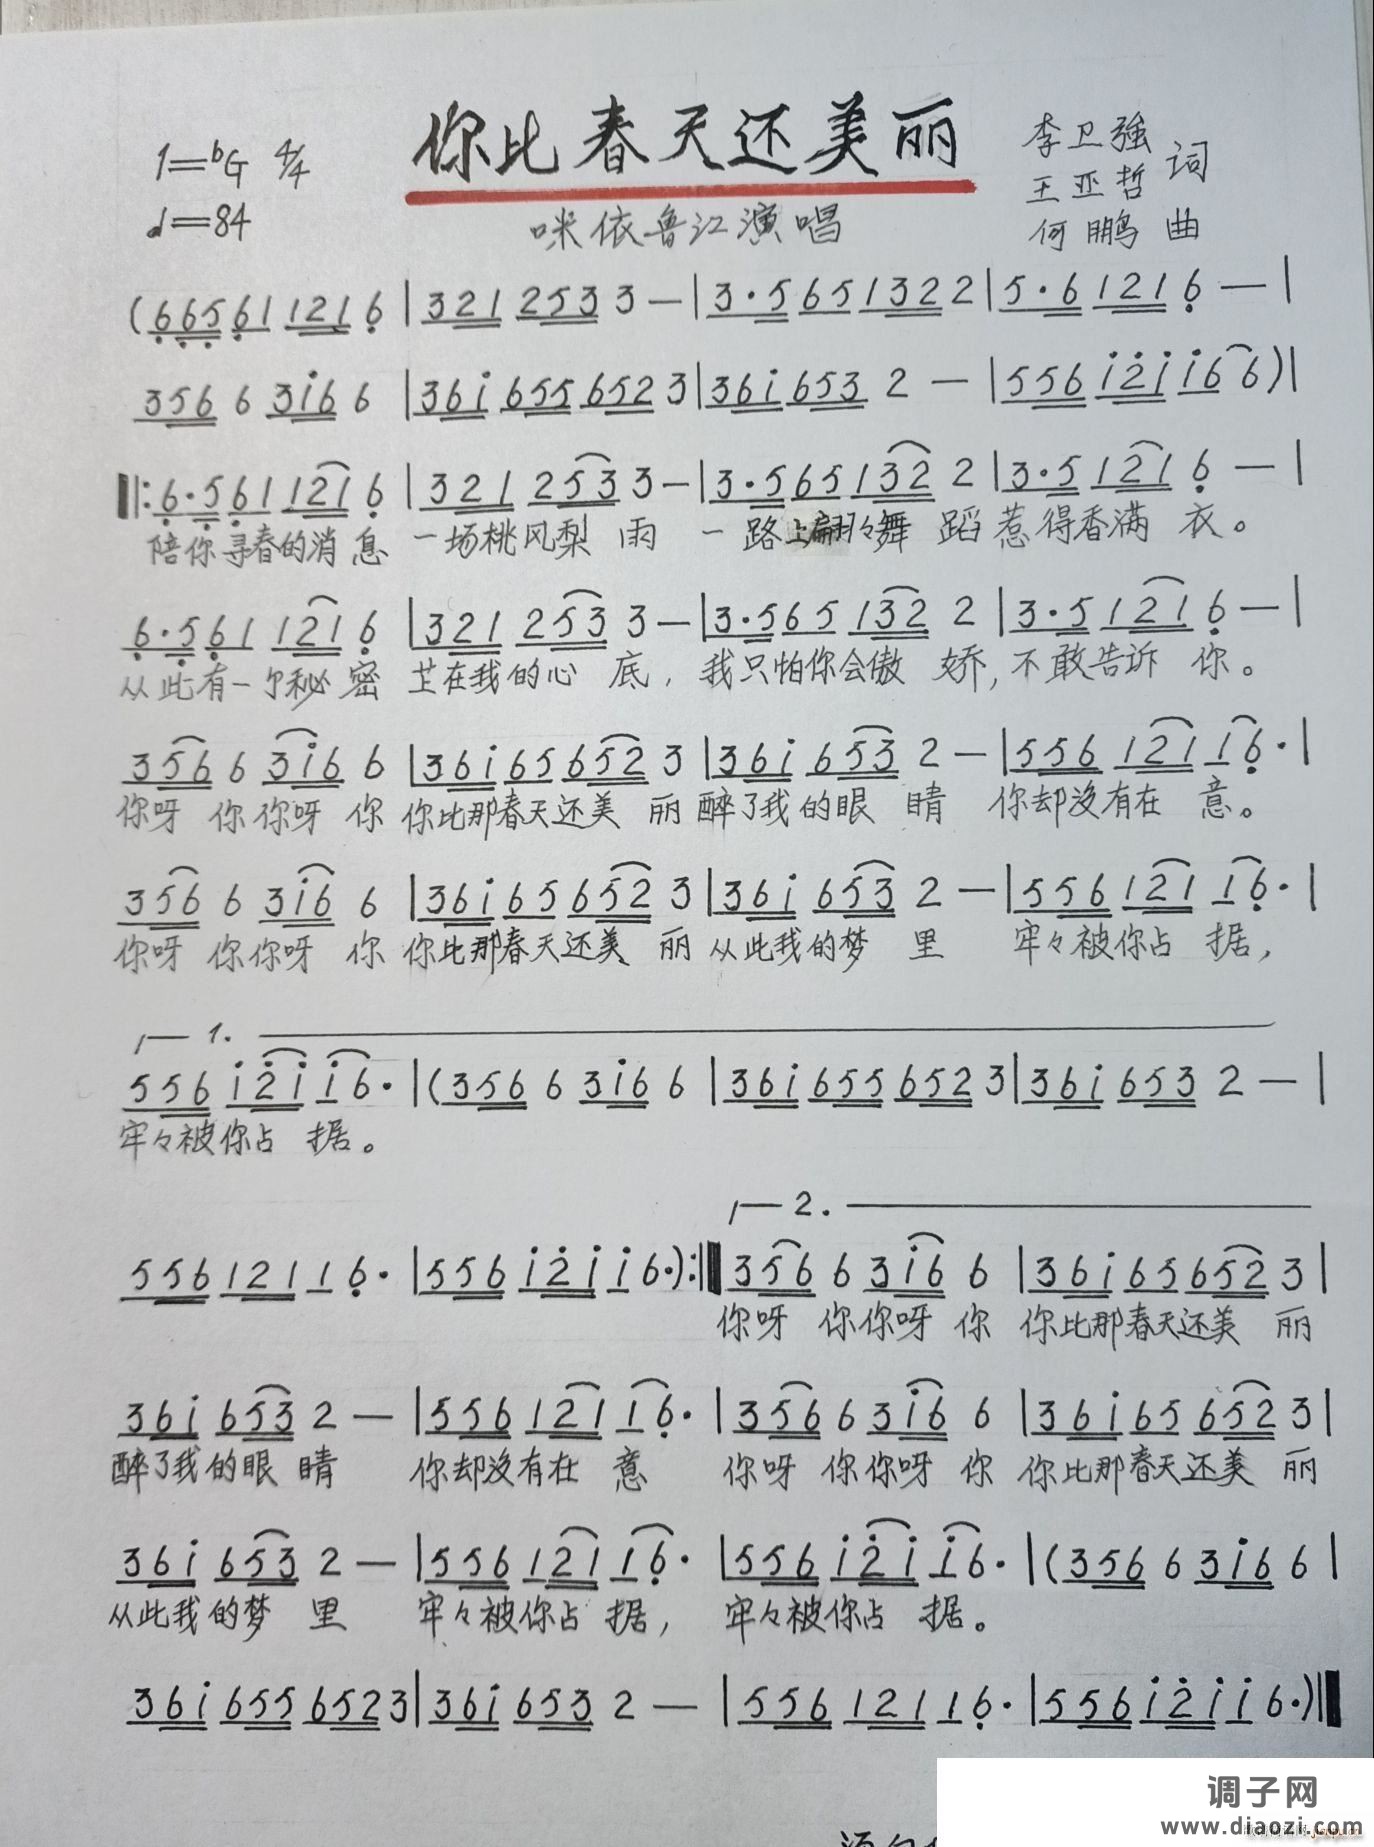 你比春天还美丽
1=♭G 4/4
♩=84
李卫强
王亚哲 词
何鹏 曲
咪依鲁江演唱
(6̣6̣5̣6̣1 1216̣ |321 2533—|3·56513222|5·61216̣—|
3566 3i̇66 |36i̇ 6556523|36i̇653 2—|556i̇2̇i̇i̇66)|
‖:6̣·5̣6̣11216̣ |321 2533—|3·5651322|3·51216̣—|
陪你寻春的消息 一场桃风梨雨 一路上翩翩々舞蹈惹得香满衣。
6̣·5̣6̣11216̣ |321 2533—|3·5651322|3·51216̣—|
从此有一个秘密 芷在我的心底，我只怕你会傲娇,不敢告诉你。
35663i̇66 |36i̇656523|36i̇6532—|55612116̣·|
你呀 你你呀 你 你比那春天还美丽 醉了我的眼睛 你却没有在意。
35663i̇66 |36i̇656523|36i̇6532—|55612116̣·|
你呀 你你呀 你 你比那春天还美丽 从此我的梦里 牢々被你占据，
1.
556i̇2̇i̇i̇6·|(35663i̇66|36i̇6556523|36i̇6532—|
牢々被你占据。
2.
55612116̣·|556i̇2̇i̇i̇6·):‖35663i̇66|36i̇656523|
你呀 你你呀 你 你比那春天还美丽
36i̇6532—|55612116̣·|35663i̇66|36i̇656523|
醉了我的眼睛 你却没有在意 你呀 你你呀 你 你比那春天还美丽
36i̇6532—|55612116̣·|556i̇2̇i̇i̇6·|(35663i̇66|
从此我的梦里 牢々被你占据，牢々被你占据。
36i̇6556523|36i̇6532—|55612116̣·|556i̇2̇i̇i̇6·)‖
调子网
www.diaozi.com